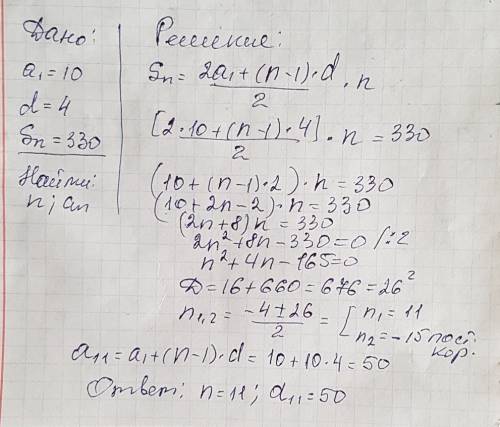 Дано:
a₁ = 10
d = 4
Sn = 330
Найти:
n; an
Решение:
Sn = (2a₁ + (n-1)·d)/2 · n
[2·10 + (n-1)·4]/2 · n = 330
(10 + (n-1)·2)·n = 330
(10 + 2n - 2)·n = 330
(2n + 8)n = 330
2n² + 8n - 330 = 0 /:2
n² + 4n - 165 = 0
D = 16 + 660 = 676 = 26²
n₁,₂ = (-4 ± 26)/2 = [n₁ = 11
n₂ = -15 пост. кор.
a₁₁ = a₁ + (n-1)·d = 10 + 10·4 = 50
Ответ: n = 11; a₁₁ = 50